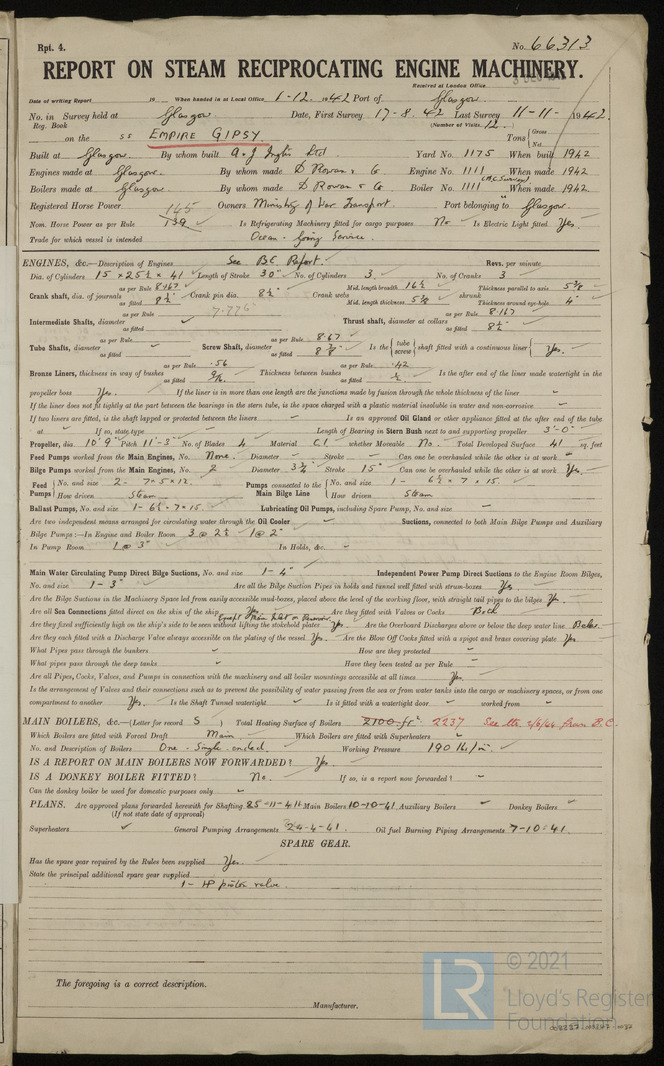 Rpt. 4. No. 66313
REPORT ON STEAM RECIPROCATING ENGINE MACHINERY.
Received at London Office
Date of writing Report 19 When handed in at Local Office 1-12- 1942 Port of Glasgow
No. in Survey held at Glasgow Date, First Survey 17-8-42 Last Survey 11-11- 1942
Reg. Book (Number of Visits. 12.)
on the SS EMPIRE GIPSY. Tons { Gross Net
Built at Glasgow. By whom built A. & J. Inglis Ltd. Yard No. 1175 When built 1942
Engines made at Glasgow. By whom made D Rowan & Co Engine No. 1111 When made 1942
Boilers made at Glasgow By whom made D Rowan & Co Boiler No. 1111 When made 1942.
Registered Horse Power 145 Owners Ministry of War Transport. Port belonging to Glasgow.
Nom. Horse Power as per Rule 139 Is Refrigerating Machinery fitted for cargo purposes No Is Electric Light fitted Yes.
Trade for which vessel is intended Ocean-Going Service.
ENGINES, &c.—Description of Engines See B.E. Report. Revs. per minute
Dia. of Cylinders 15 x 25½ x 41 Length of Stroke 30" No. of Cylinders 3 No. of Cranks 3
Crank shaft, dia. of journals as per Rule 8.167 as fitted 8½" Crank pin dia. 8½" Crank webs Mid. length breadth 16½ Mid. length thickness 5⅜ shrunk Thickness parallel to axis 5⅜ Thickness around eye-hole 4"
Intermediate Shafts, diameter as per Rule 7.776" as fitted Thrust shaft, diameter at collars as per Rule 8.167 as fitted 8½"
Tube Shafts, diameter as per Rule as fitted Screw Shaft, diameter as per Rule 8.67 as fitted 8⅞ Is the { tube screw } shaft fitted with a continuous liner { Yes.
Bronze Liners, thickness in way of bushes as per Rule .56 as fitted 9/16. Thickness between bushes as per Rule .42 as fitted ½ Is the after end of the liner made watertight in the
propeller boss Yes. If the liner is in more than one length are the joints made by fusion through the whole thickness of the liner -
If the liner does not fit tightly at the part between the bearings in the stern tube, is the space charged with a plastic material insoluble in water and non-corrosive -
If two liners are fitted, is the shaft lapped or protected between the liners - Is an approved Oil Gland or other appliance fitted at the after end of the tube
at If so, state type - Length of Bearing in Stern Bush next to and supporting propeller 3'-0"
Propeller, dia 10'9" Pitch 11'-3" No. of Blades 4 Material C.I. whether Moveable No. Total Developed Surface 41 sq. feet
Feed Pumps worked from the Main Engines, No. None. Diameter - Stroke - Can one be overhauled while the other is at work -
Bilge Pumps worked from the Main Engines, No. 2 Diameter 3¼" Stroke 15" Can one be overhauled while the other is at work Yes.
Feed Pumps { No. and size 2- 7x5x12. How driven Steam Pumps connected to the Main Bilge Line { No. and size 1- 6½ x 7 x 15. How driven Steam
Ballast Pumps, No. and size 1- 6½ x 7 x 15. Lubricating Oil Pumps, including Spare Pump, No. and size -
Are two independent means arranged for circulating water through the Oil Cooler - Suctions, connected to both Main Bilge Pumps and Auxiliary
Bilge Pumps:—In Engine and Boiler Room 3 @ 2½ 1 @ 2"
In Pump Room 1 @ 3" In Holds, &c. -
Main Water Circulating Pump Direct Bilge Suctions, No. and size 1-4" Independent Power Pump Direct Suctions to the Engine Room Bilges,
No. and size 1-3" Are all the Bilge Suction Pipes in holds and tunnel well fitted with strum-boxes Yes
Are the Bilge Suctions in the Machinery Space led from easily accessible mud-boxes, placed above the level of the working floor, with straight tail pipes to the bilges Yes.
Are all Sea Connections fitted direct on the skin of the ship Yes. Are they fitted with Valves or Cocks Both
Are they fixed sufficiently high on the ship's side to be seen without lifting the stokehold plates Except Main Inlet Yes. Are the Overboard Discharges above or below the deep water line Below.
Are they each fitted with a Discharge Valve always accessible on the plating of the vessel Yes. Are the Blow Off Cocks fitted with a spigot and brass covering plate Yes
What Pipes pass through the bunkers - How are they protected -
What pipes pass through the deep tanks - Have they been tested as per Rule -
Are all Pipes, Cocks, Valves, and Pumps in connection with the machinery and all boiler mountings accessible at all times Yes.
Is the arrangement of Valves and their connections such as to prevent the possibility of water passing from the sea or from water tanks into the cargo or machinery spaces, or from one
compartment to another Yes. Is the Shaft Tunnel watertight - Is it fitted with a watertight door - worked from -
MAIN BOILERS, &c.—(Letter for record S) Total Heating Surface of Boilers 2100 ft² 2237 See ltr. 2/6/44 from B.C.
Which Boilers are fitted with Forced Draft Main. Which Boilers are fitted with Superheaters -
No. and Description of Boilers One - Single-ended. Working Pressure 190 lb/in².
IS A REPORT ON MAIN BOILERS NOW FORWARDED? Yes.
IS A DONKEY BOILER FITTED? No. If so, is a report now forwarded? -
Can the donkey boiler be used for domestic purposes only -
PLANS. Are approved plans forwarded herewith for Shafting 25-11-41 Main Boilers 10-10-41 Auxiliary Boilers - Donkey Boilers -
(If not state date of approval)
Superheaters - General Pumping Arrangements 24-4-41. Oil fuel Burning Piping Arrangements 7-10-41.
SPARE GEAR.
Has the spare gear required by the Rules been supplied Yes.
State the principal additional spare gear supplied
1- HP piston valve.
The foregoing is a correct description.
Manufacturer.
© 2021
LR Lloyd's Register
Foundation